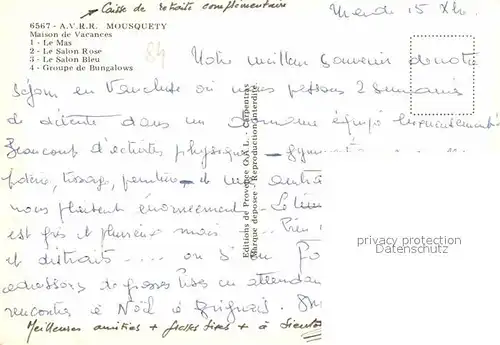 Caisse de retraite complémentaire
6567 - A.V.R.R. MOUSQUETY
Maison de Vacances
1 - Le Mas
2 - Le Salon Rose
3 - Le Salon Bleu
4 - Groupe de Bungalows
84
Mardi 15 
Notre meilleur souvenir de notre
séjour en Vaucluse où nous passons 2 semaines
de détente dans un domaine équipé
Beaucoup d'activités physiques - 
poterie, tissage, peinture, - et 
nous plaisent énormément. Le
est gris et pluvieux mais
et distraits .... on s'en
adressons de grosses bises en attendan
rencontre à Noël à Brignais.
Meilleures amitiés + grosses bises + à bientôt
Editions de Provence O.A.L. - Carpentras
Marque déposée - Reproduction interdite
privacy protection
Datenschutz